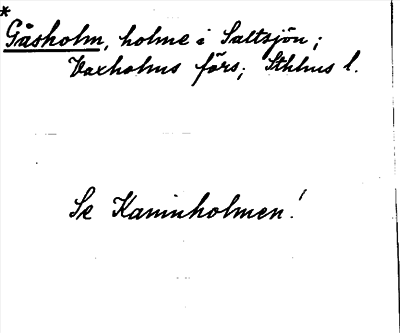 *
Gåsholm, holme i Saltsjön;
Vaxholms förs; Sthlms l.
Se Kaninholmen!